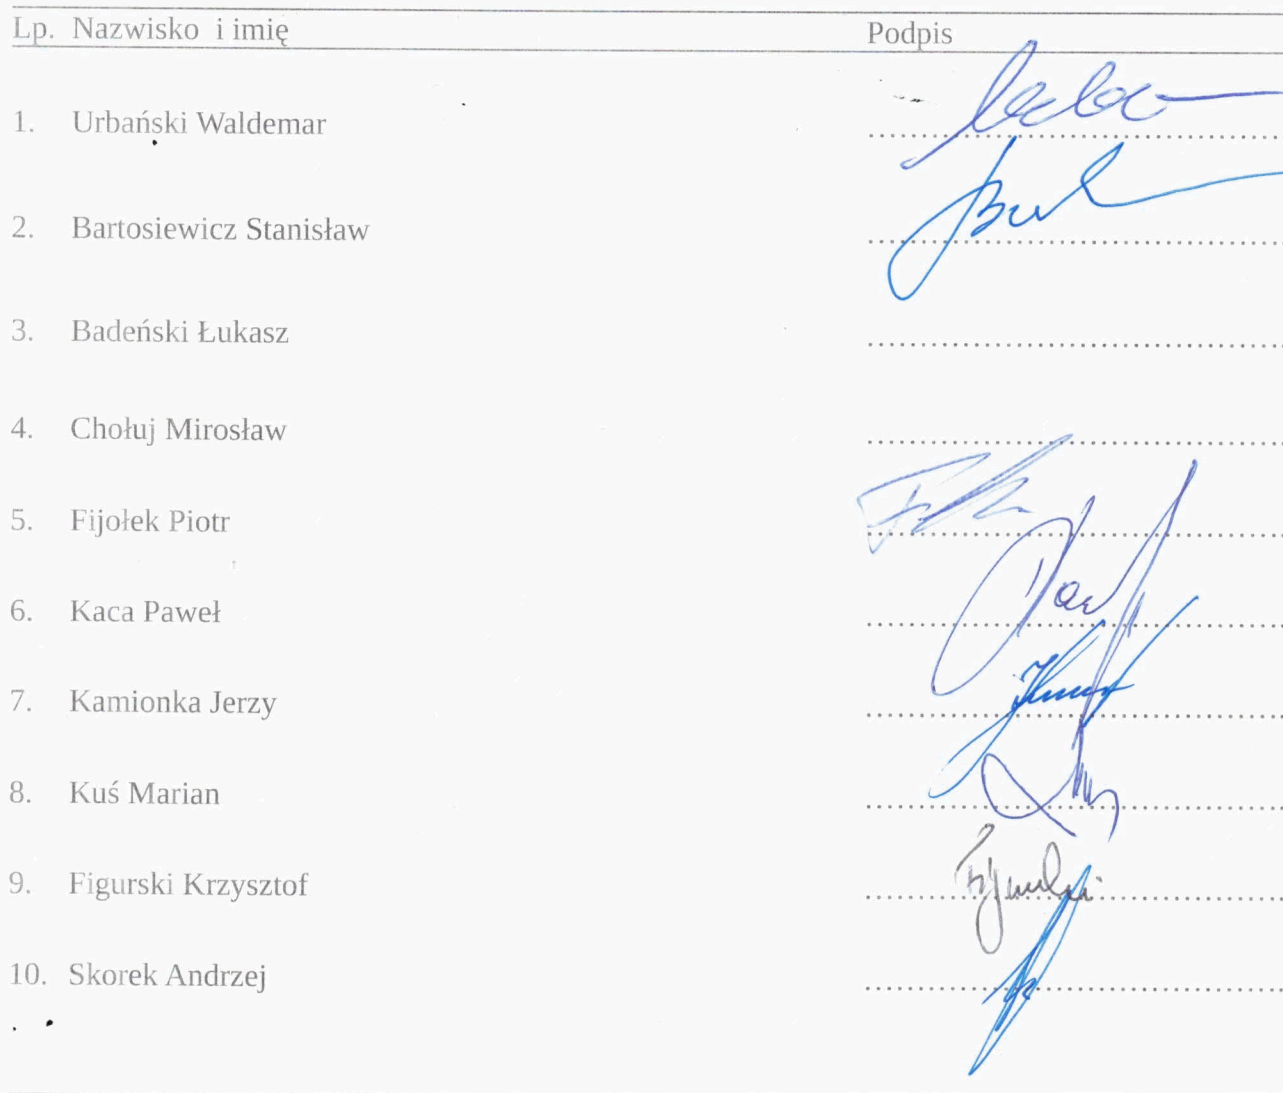 Lp. Nazwisko i imię Podpis
1. Urbański Waldemar
2. Bartosiewicz Stanisław
3. Badeński Łukasz
4. Chołuj Mirosław
5. Fijołek Piotr
6. Kaca Paweł
7. Kamionka Jerzy
8. Kuś Marian
9. Figurski Krzysztof
10. Skorek Andrzej